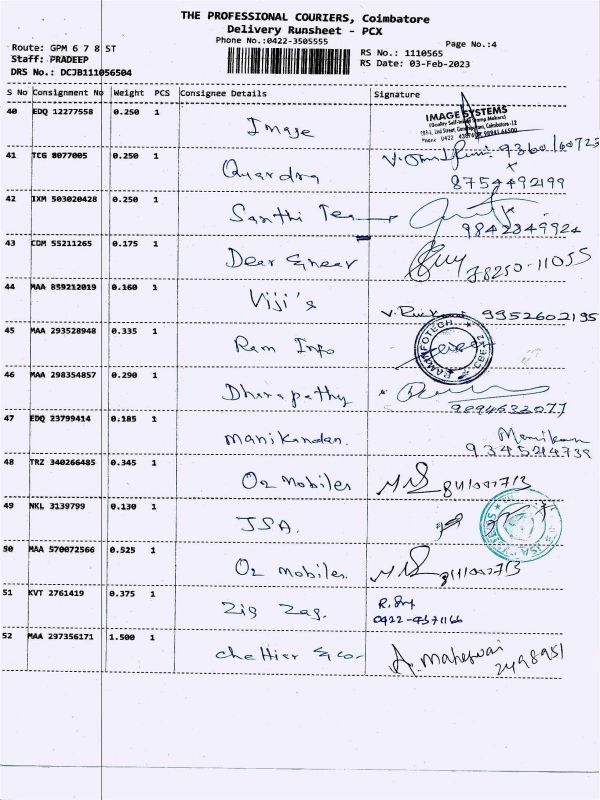 THE PROFESSIONAL COURIERS, Coimbatore
Delivery Runsheet - PCX
Phone No.:0422-3505555
Page No.:4
Route: GPM 6 7 8 ST
Staff: PRADEEP
DRS No.: DCJB111056504
RS No.: 1110565
RS Date: 03-Feb-2023
S No Consignment No Weight PCS Consignee Details Signature
40 EDQ 12277558 0.250 1 Image
IMAGE SYSTEMS
41 TCG 8077005 0.250 1 Quardra
8754492199
42 IXM 503020428 0.250 1 Santhi Tea
9842349924
43 COM 55211265 0.175 1 Dear Eneer 78250-11055
44 MAA 859212019 0.160 1 Viji's 9952602195
45 MAA 293528948 0.335 1 Ram Info
46 MAA 298354857 0.290 1 Dhanapathy
9894633077
47 EDQ 23799414 0.185 1 Manikandan. Manikan
9345214739
48 TRZ 340266485 0.345 1 O2 Mobiles
49 NKL 3139799 0.130 1 JSA.
50 MAA 570072566 0.525 1 O2 mobiles.
51 KVT 2761419 0.375 1 Zig Zag.
0422-4371166
52 MAA 297356171 1.500 1 Chettier & Co- A. Maheswai
2498951